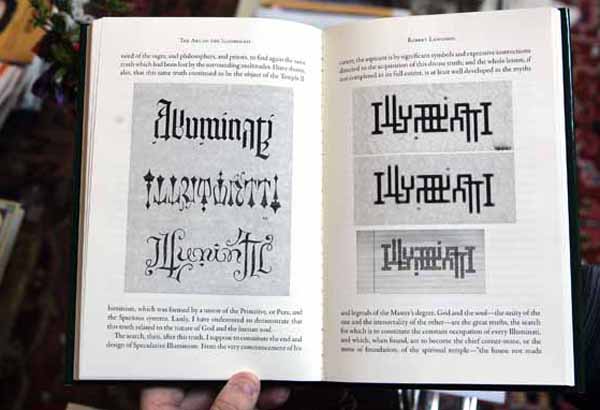 The Art of the Illuminati
need of the sages, and philosophers, and priests, to find again the same
truth which had been lost by the surrounding multitudes. I have shown,
also, that this same truth continued to be the object of the Temple Il
Illuminati
Illuminati
Illuminati
luminism, which was formed by a union of the Primitive, or Pure, and
the Spurious systems. Lastly, I have endeavored to demonstrate that
this truth related to the nature of God and the human soul.
The search, then, after this truth, I suppose to constitute the end and
design of Speculative Illuminism. From the very commencement of his
Robert Langdon
career, the aspirant is by significant symbols and expressive instructions
directed to the acquisition of this divine truth; and the whole lesson, if
not completed in its full extent, is at least well developed in the myths
Illuminati
Illuminati
Illuminati
and legends of the Master's degree. God and the soul—the unity of the
one and the immortality of the other—are the great truths, the search
for which is to constitute the constant occupation of every Illuminati,
and which, when found, are to become the chief corner-stone, or the
stone of foundation, of the spiritual temple—"the house not made